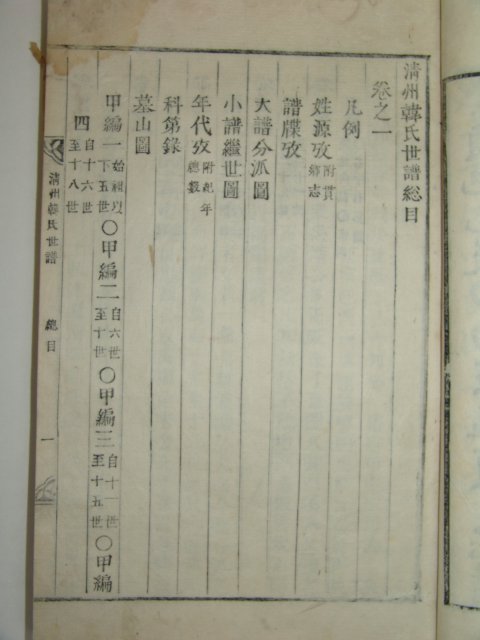 清州韓氏世譜總目
卷之一
凡例
姓源攷 附貫鄉志
譜牒攷
大譜分派圖
小譜繼世圖
年代攷 附紀年總數
科第錄
墓山圖
甲編一 始祖以下五世 〇甲編二 自六世至十世 〇甲編三 自十一世至十五世 〇甲編
四 自十六世至十八世
清州韓氏世譜 總目 一